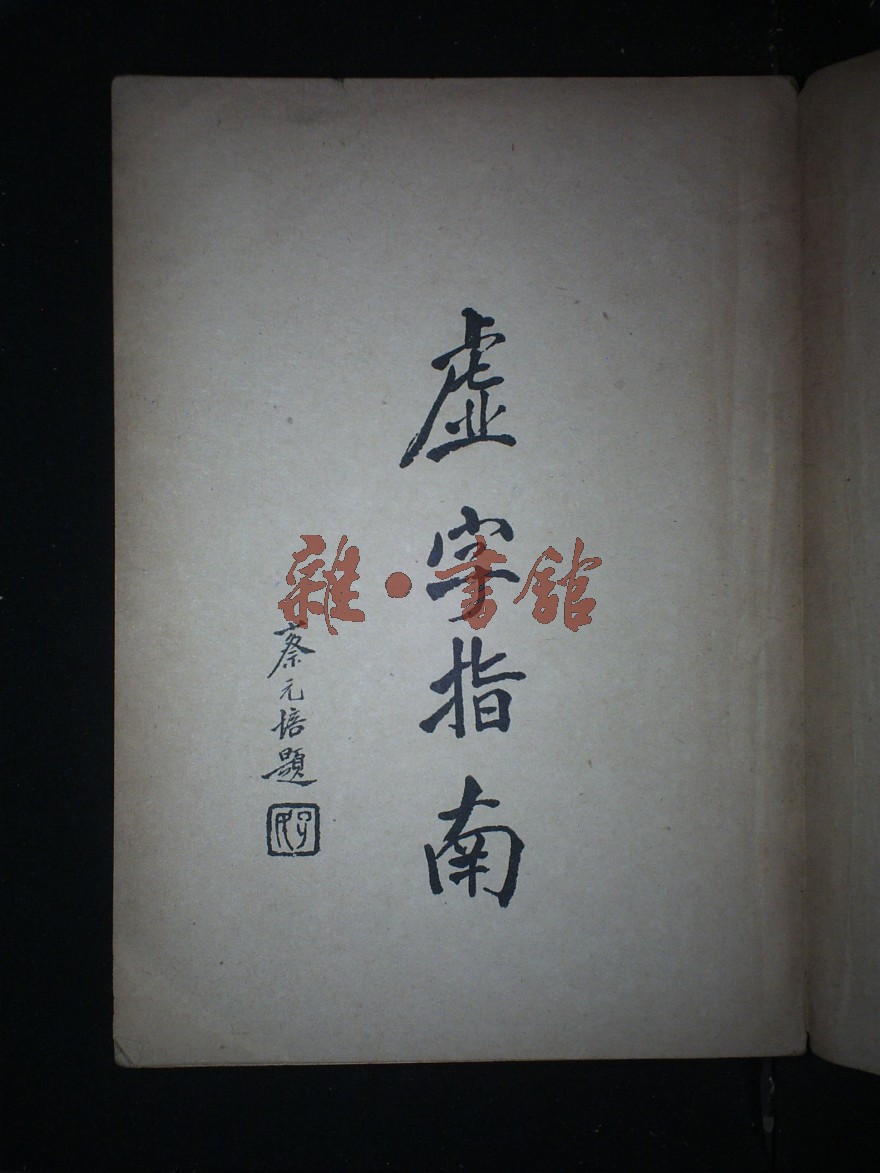 虛字指南
蔡元培題
孑民
雜·書館